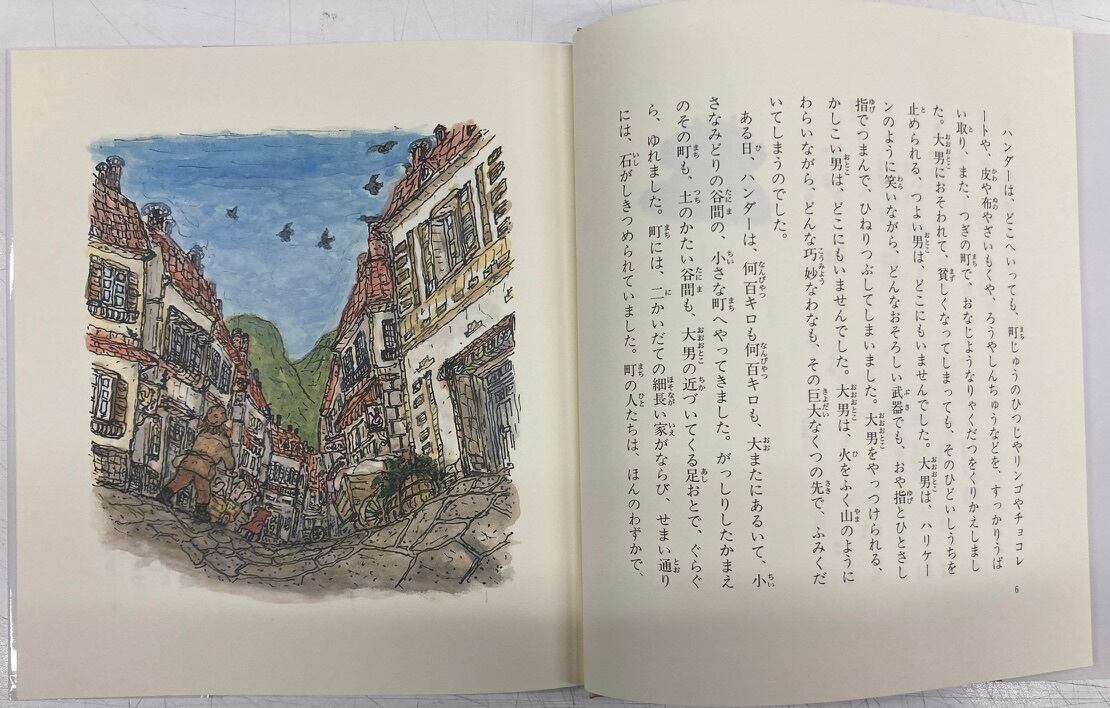 ハンダーは、どこへいっても、町じゅうのひつじやリンゴやチョコレ
ートや、皮や布やざいもくや、ろうやしんちゅうなどを、すっかりうば
い取り、また、つぎの町で、おなじようなりゃくだつをくりかえしまし
た。大男におそわれて、貧しくなってしまっても、そのひどいしうちを
止められる、つよい男は、どこにもいませんでした。大男は、ハリケー
ンのように笑いながら、どんなおそろしい武器でも、おや指とひとさし
指でつまんで、ひねりつぶしてしまいました。大男をやっつけられる、
かしこい男は、どこにもいませんでした。大男は、火をふく山のように
わらいながら、どんな巧妙なわなも、その巨大なくつの先で、ふみくだ
いてしまうのでした。
ある日、ハンダーは、何百キロも何百キロも、大またにあるいて、小
さなみどりの谷間の、小さな町へやってきました。がっしりしたかまえ
のその町も、土のかたい谷間も、大男の近づいてくる足おとで、ぐらぐ
ら、ゆれました。町には、二かいだての細長い家がならび、せまい通り
には、石がしきつめられていました。町の人たちは、ほんのわずかで、
6